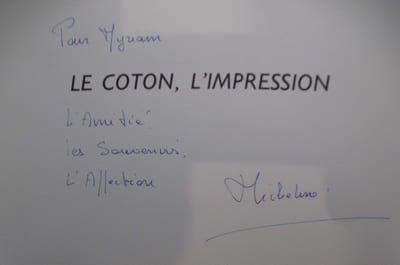 Pour Myriam
LE COTON, L'IMPRESSION
L'Amitié
les Souvenirs,
L'Affection
Micheline